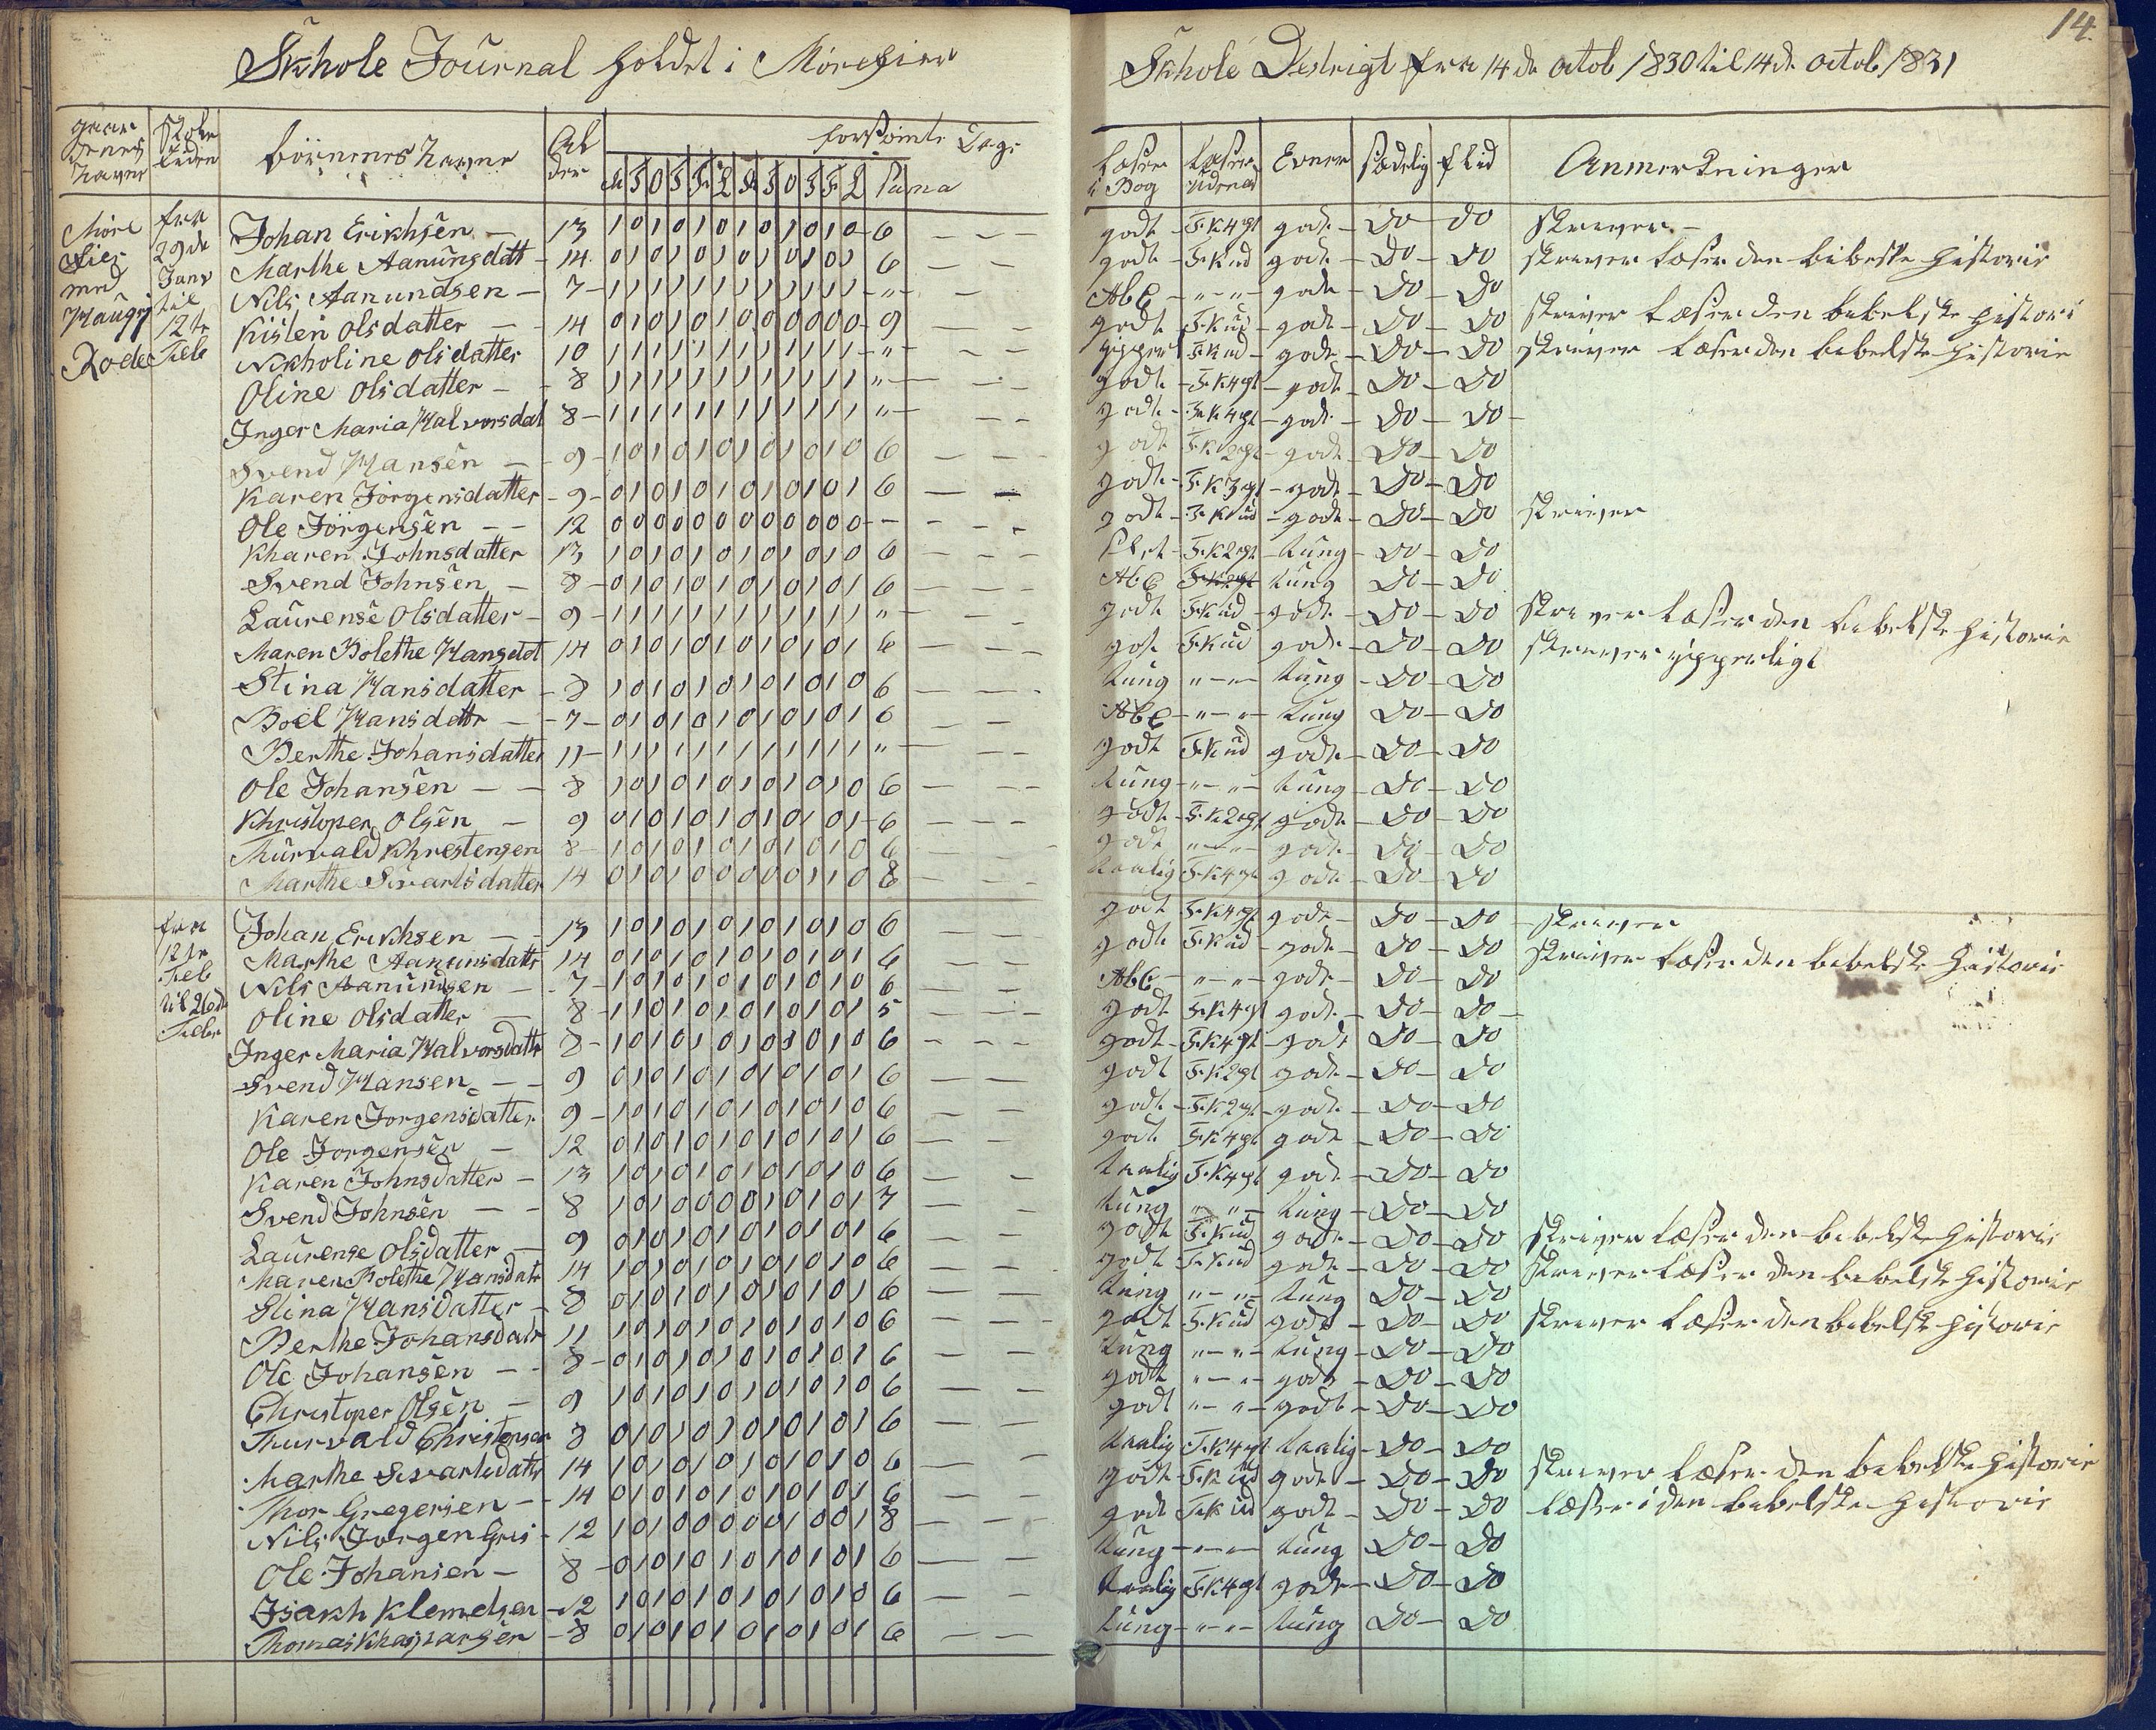 14.
Skhole Journal holdet i Morefier Skhole Destrigt fra 14 de octob 1830 til 14 de octob 1831
gaardenes Navne Skole tiden börnenes Navne Alder forsømte Dage Læser i Bog Læser udenad Evner sædelig flid Anmerkninger
M T O T F L M T O T F L Suma
More fier med Haugs Rode
fra 29 de Janv til 12te Feb
Johan Erikhsen 13 1 0 1 0 1 0 1 0 1 0 1 0 6 godt F.K 4 pt godt Do Do skriver
Marthe Aanungsdatt 14 0 1 0 1 0 1 0 1 0 1 0 1 6 godt F.K ud godt Do Do skriver læser den bibelske historie
Nils Aanundsen 7 1 1 1 1 1 1 1 1 1 1 1 1 " Abc " " godt Do Do
Kisten Olsdatter 14 0 1 0 1 0 1 0 0 0 0 0 0 9 godt F.K ud godt Do Do skriver læser den bebelske histori
Nikholine Olsdatter 10 1 1 1 1 1 1 1 1 1 1 1 1 " ypperl F.K ud godt Do Do skriver læser den bebelske historie
Oline Olsdatter 8 1 1 1 1 1 1 1 1 1 1 1 1 " godt F.K 4 pt godt Do Do
Inger Maria Halvorsdat 8 1 1 1 1 1 1 1 1 1 1 1 1 " godt F.K 4 pt godt Do Do
Svend Hansen 9 1 0 1 0 1 0 1 0 1 0 1 0 6 godt F.K 2 pt godt Do Do
Karen Jorgensdatter 9 0 1 0 1 0 1 0 1 0 1 0 1 6 godt F.K 3 pt godt Do Do
Ole Jörgensen 12 0 0 0 0 0 0 0 0 0 0 0 0 godt F.K ud godt Do Do skriver
Kharen Johnsdatter 13 1 0 1 0 1 0 1 0 1 0 1 0 6 slet F.K 2 pt tung Do Do
Svend Johnsen 8 0 1 0 1 0 1 0 1 0 1 0 1 6 Abc F.K 2 pt tung Do Do
Laurense Olsdatter 9 1 1 1 1 1 1 1 1 1 1 1 1 " godt F.K ud godt Do Do skriver læser den bebelske historie
Maren Bolethe Hansdat 14 0 1 0 1 0 1 0 1 0 1 0 1 6 got F.K ud godt Do Do skriver ypperligt
Stina Hansdatter 8 1 0 1 0 1 0 1 0 1 0 1 0 6 tung " " tung Do Do
Boel Hansdattr 7 0 1 0 1 0 1 0 1 0 1 0 1 6 Abc " " tung Do Do
Berthe Johansdatter 11 1 1 1 1 1 1 1 1 1 1 1 1 " godt F.K ud godt Do Do
Ole Johansen 8 1 0 1 0 1 0 1 0 1 0 1 0 6 tung " " tung Do Do
Khristoper Olsen 9 0 1 0 1 0 1 0 1 0 1 0 1 6 godt F.K 2 pt godt Do Do
Thurvald Khrestensen 8 1 0 1 0 1 0 1 0 1 0 1 0 6 godt " " godt Do Do
Marthe Sivartsdatter 14 0 1 0 1 0 0 0 0 0 1 1 0 8 taalig F.K 4 pt godt Do Do
fra 12te Feb til 26de Feber
Johan Erikhsen 13 1 0 1 0 1 0 1 0 1 0 1 0 6 godt F.K 4 pt godt Do Do skriver
Marthe Aanunsdattr 14 0 1 0 1 0 1 0 1 0 1 0 1 6 godt F.K ud godt Do Do skriver læser den bebelske historie
Nils Aanundsen 7 1 0 1 0 1 0 1 0 1 0 1 0 6 Abc " " godt Do Do
Oline Olsdatter 8 1 1 0 1 0 1 0 1 0 1 0 1 5 godt F.K 4 pt godt Do Do
Inger Maria Halvorsdattr 8 1 0 1 0 1 0 1 0 1 0 1 0 6 godt F.K 4 pt godt Do Do
Svend Hansen 9 0 1 0 1 0 1 0 1 0 1 0 1 6 godt F.K 2 pt godt Do Do
Karen Jorgensdatter 9 1 0 1 0 1 0 1 0 1 0 1 0 6 godt F.K 2 pt godt Do Do
Ole Jorgensen 12 0 1 0 1 0 1 0 1 0 1 0 1 6 godt F.K 4 pt godt Do Do
Karen Johnsdatter 13 1 0 1 0 1 0 1 0 1 0 1 0 6 taalig F.K 4 pt godt Do Do
Svend Johnsen 8 1 0 1 0 0 0 0 1 0 1 0 1 7 tung " " tung Do Do
Laurense Olsdatter 9 0 1 0 1 0 1 0 1 0 1 0 1 6 godt F.K ud godt Do Do skriver læser den bebelske historie
Maren Bolethe Hansdatr 14 1 0 1 0 1 0 1 0 1 0 1 0 6 godt F.K ud godt Do Do skriver læser den bebelske historie
Stina Hansdatter 8 0 1 0 1 0 1 0 1 0 1 0 1 6 tung " " tung Do Do
Berthe Johansdatr 11 1 0 1 0 1 0 1 0 1 0 1 0 6 godt F.K ud godt Do Do skriver læser den bebelske historie
Ole Johansen 8 0 1 0 1 0 1 0 1 0 1 0 1 6 tung " " tung Do Do
Christoper Olsen 9 1 0 1 0 1 0 1 0 1 0 1 0 6 godt " " godt Do Do
Thurvald Christensen 8 0 1 0 1 0 1 0 1 0 1 0 1 6 godt " " godt Do Do
Marthe Sivartsdattr 14 1 0 1 0 1 0 1 0 1 0 1 0 6 taalig F.K 4 pt taalig Do Do
Thor Gregersen 14 0 1 0 1 0 1 0 1 0 1 0 1 6 godt F.K ud godt Do Do skriver læser den bebelske historie
Nils Jorgen Gres 12 1 0 1 0 0 0 0 0 1 0 0 1 8 godt F.K ud godt Do Do læser i den bebelske historie
Ole Johansen 8 0 1 0 1 0 1 0 1 0 1 0 1 6 tung " tung Do Do
Isakh Klemetsen 12 1 0 1 0 1 0 1 0 1 0 1 0 6 taalig F.K 4 pt godt Do Do
Thomas Khasparsen 8 0 1 0 1 0 1 0 1 0 1 0 1 6 tung " " tung Do Do